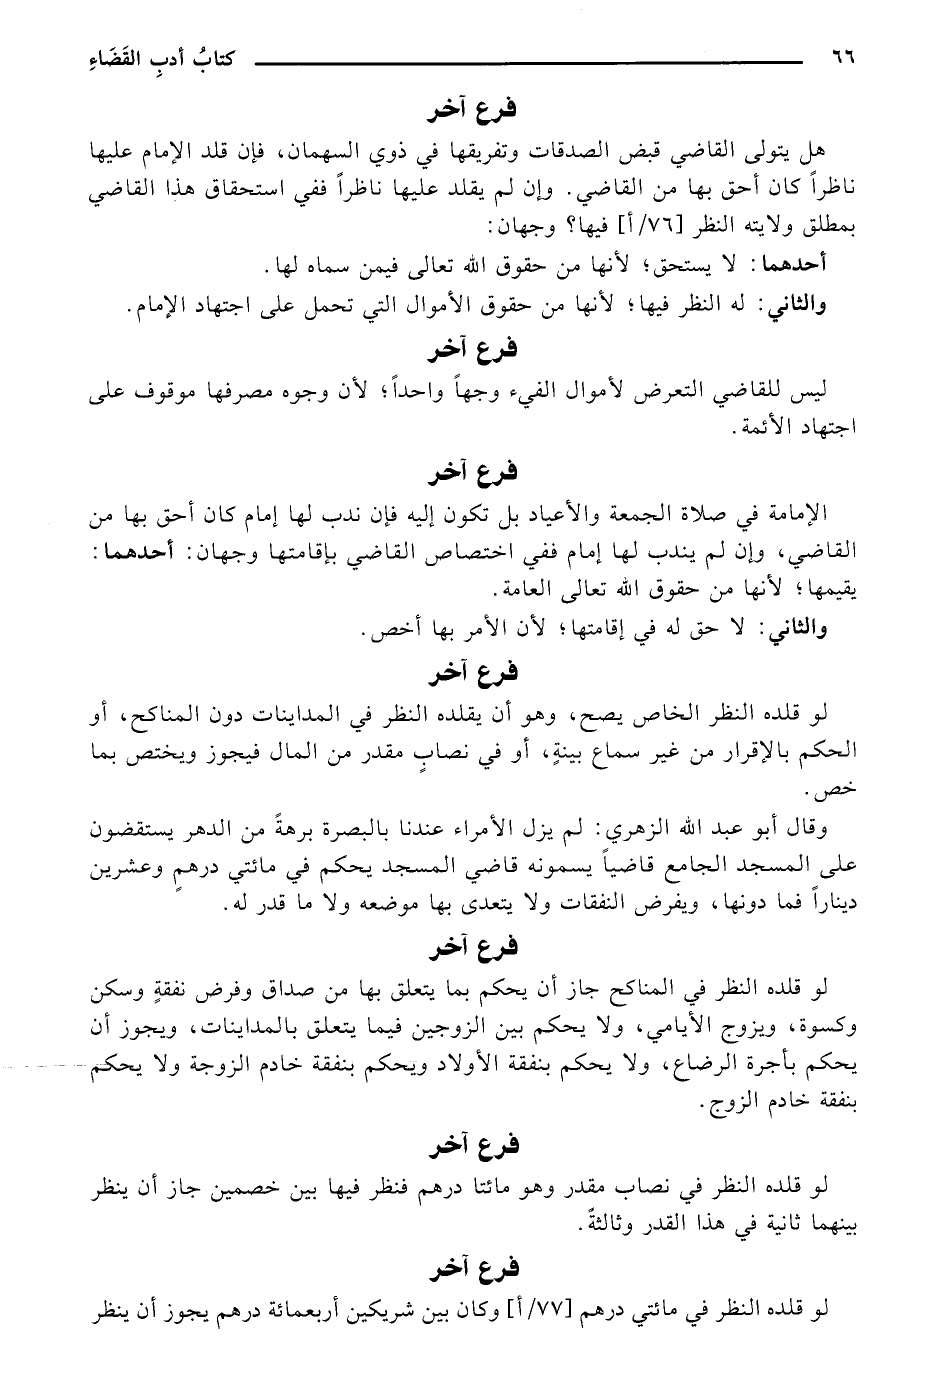 ٦٦ كتابُ أدبِ القَضَاءِ
فرع آخر
هل يتولى القاضي قبض الصدقات وتفريقها في ذوي السهمان، فإن قلد الإمام عليها
ناظراً كان أحق بها من القاضي. وإن لم يقلد عليها ناظراً ففي استحقاق هذا القاضي
بمطلق ولايته النظر [٧٦/ أ] فيها؟ وجهان:
أحدهما: لا يستحق؛ لأنها من حقوق الله تعالى فيمن سماه لها.
والثاني: له النظر فيها؛ لأنها من حقوق الأموال التي تحمل على اجتهاد الإمام.
فرع آخر
ليس للقاضي التعرض لأموال الفيء وجهاً واحداً؛ لأن وجوه مصرفها موقوف على
اجتهاد الأئمة.
فرع آخر
الإمامة في صلاة الجمعة والأعياد بل تكون إليه فإن ندب لها إمام كان أحق بها من
القاضي، وإن لم يندب لها إمام ففي اختصاص القاضي بإقامتها وجهان: أحدهما:
يقيمها؛ لأنها من حقوق الله تعالى العامة.
والثاني: لا حق له في إقامتها؛ لأن الأمر بها أخص.
فرع آخر
لو قلده النظر الخاص يصح، وهو أن يقلده النظر في المداينات دون المناكح، أو
الحكم بالإقرار من غير سماع بينةٍ، أو في نصابٍ مقدر من المال فيجوز ويختص بما
خص.
وقال أبو عبد الله الزهري: لم يزل الأمراء عندنا بالبصرة برهةً من الدهر يستقضون
على المسجد الجامع قاضياً يسمونه قاضي المسجد يحكم في مائتي درهمٍ وعشرين
ديناراً فما دونها، ويفرض النفقات ولا يتعدى بها موضعه ولا ما قدر له.
فرع آخر
لو قلده النظر في المناكح جاز أن يحكم بما يتعلق بها من صداق وفرض نفقةٍ وسكن
وكسوة، ويزوج الأيامي، ولا يحكم بين الزوجين فيما يتعلق بالمداينات، ويجوز أن
يحكم بأجرة الرضاع، ولا يحكم بنفقة الأولاد ويحكم بنفقة خادم الزوجة ولا يحكم
بنفقة خادم الزوج.
فرع آخر
لو قلده النظر في نصاب مقدر وهو مائتا درهم فنظر فيها بين خصمين جاز أن ينظر
بينهما ثانية في هذا القدر وثالثةً.
فرع آخر
لو قلده النظر في مائتي درهم [٧٧/ أ] وكان بين شريكين أربعمائة درهم يجوز أن ينظر